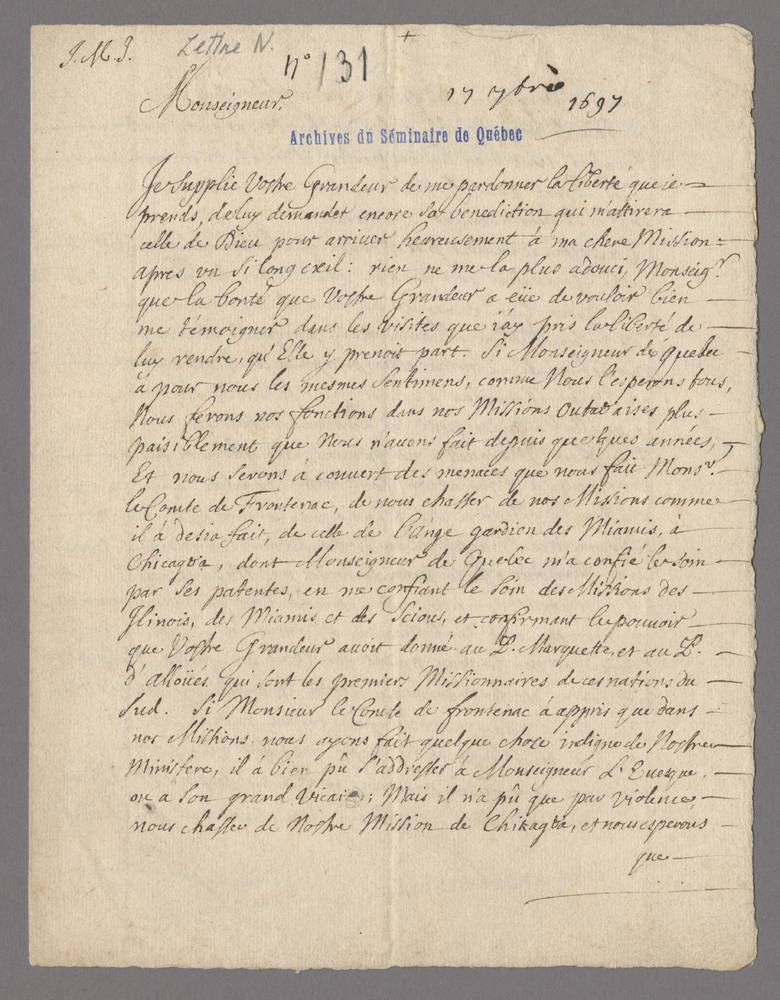 J. M. J. Lettre N.
n° 131
17 7bre 1697
Monseigneur,
Archives du Séminaire de Québec
Je supplie Vostre Grandeur de me pardonner la liberté que ie
prends, de luy demander encore sa benediction qui m'attirera
celle de Dieu pour arriuer heureusement à ma chere Mission
apres vn si long exil : rien ne me la plus adouci, Monseigr.
que la bonté que Vostre Grandeur a eüe de vouloir bien
me témoigner dans les visites que i'ay pris la liberté de
luy rendre, qu'Elle y prenoit part. Si Monseigneur de quebec
à pour nous les mesmes sentimens, comme Nous l'esperons tous,
Nous ferons nos fonctions dans nos Missions outavaises plus
paisiblement que Nous n'auons fait depuis quelques années,
Et nous serons à couvert des menaces que nous fait Monsr.
le Comte de Frontenac, de nous chasser de nos Missions comme
il à desia fait, de celle de l'ange gardien des Miamis, à
Chicag8a, dont Monseigneur de Quebec m'a confié le soin
par ses patentes, en me confiant le soin des Missions des
Ilinois, des Miamis et des Scioux, et confirmant le pouuoir
que Vostre Grandeur auoit donné au P. Marquette, et au P.
d'alloües qui sont les premiers Missionnaires de ces nations du
Sud. Si Monsieur le Comte de frontenac à appris que dans
nos Missions nous ayons fait quelque chose indigne de Nostre
Ministere, il à bien pû s'addresser à Monseigneur L'Euesque,
ou a son grand Vicaire; Mais il n'a pû que par violence,
nous chasser de Nostre Mission de Chikag8a, et nous esperons
que